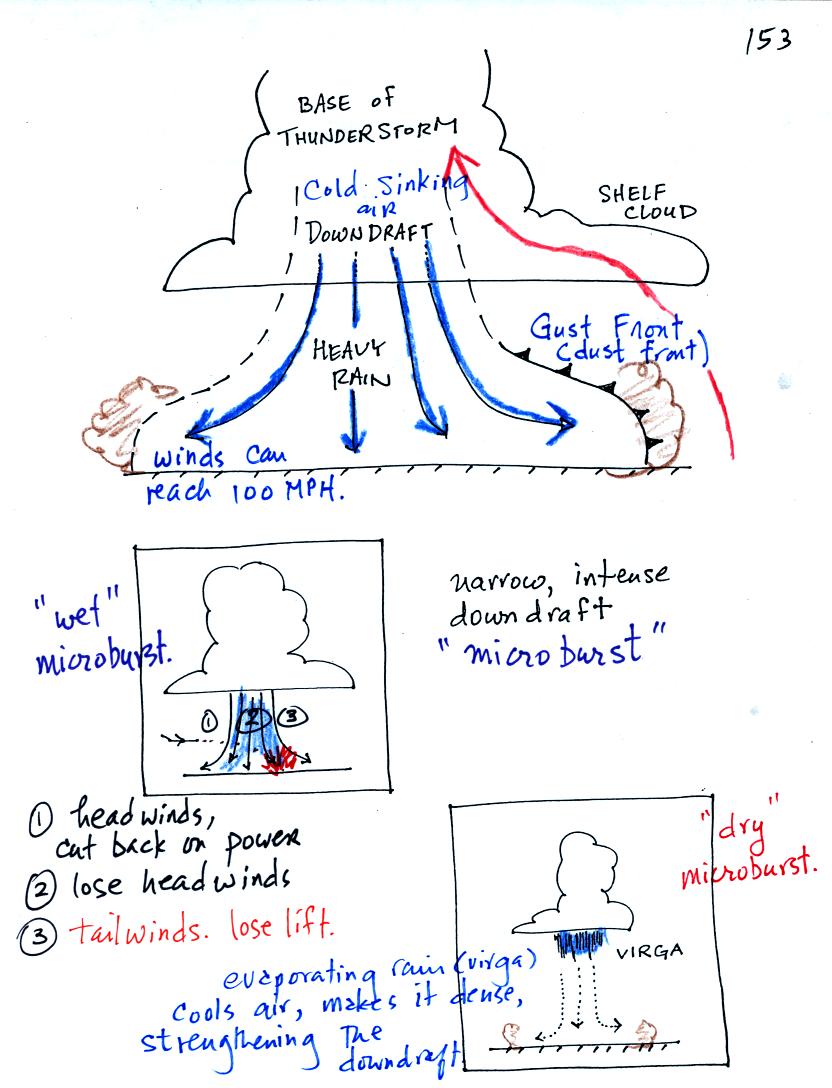 153
BASE of
THUNDERSTORM
Cold Sinking
air
DOWNDRAFT
SHELF
CLOUD
Gust Front
(dust front)
HEAVY
RAIN
winds can
reach 100 MPH.
"wet"
microburst.
narrow, intense
downdraft
"microburst"
1 2 3
1 headwinds,
cut back on power
2 lose headwinds
3 tailwinds. lose lift.
"dry"
microburst.
VIRGA
evaporating rain (virga)
cools air, makes it dense,
strengthening the
downdraft